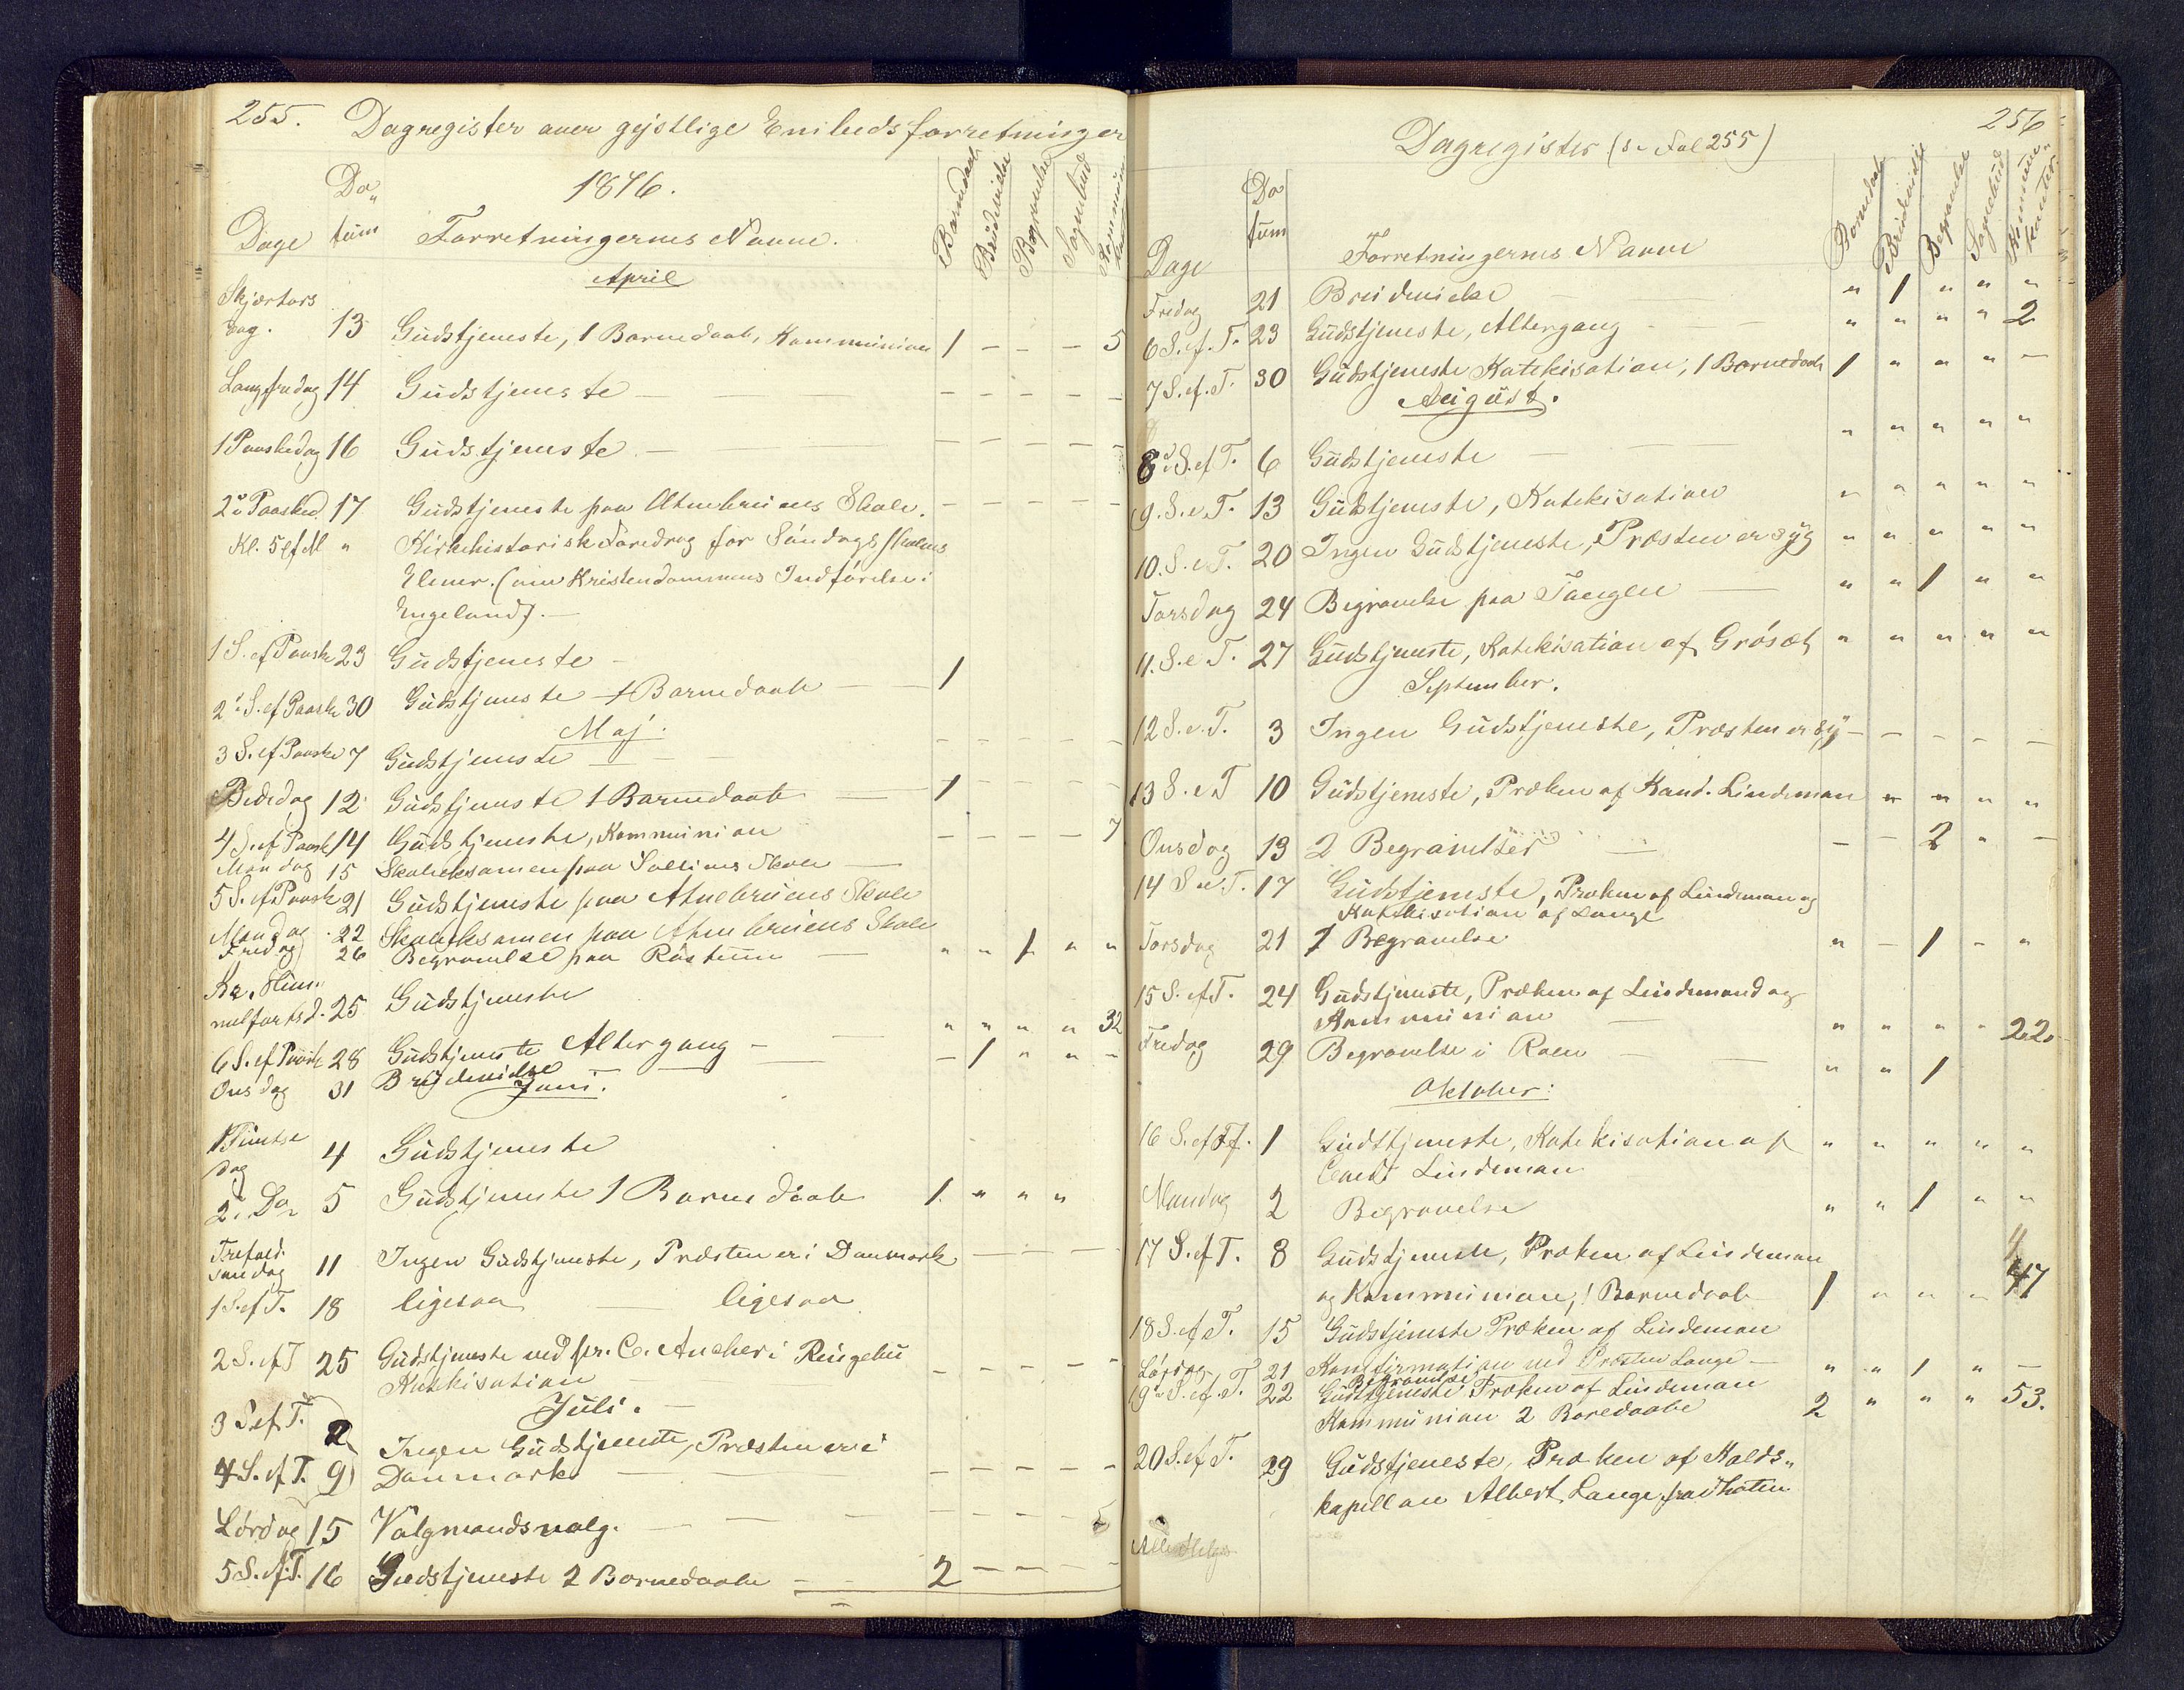 255.
Dagregister over gejstlige Embedsforretninger
Da„
1876.
Dage
tum
Forretningernes Navne.
Barnedaab
Brudevielse
Begravelse
Sognebud
Kommuni
kan
April
Skjærtors
dag. 13 Gudstjeneste, 1 Barnedaab, Kommunion 1 — — — 5
Langfredag 14 Gudstjeneste — — — — — —
1 Paaskedag 16 Gudstjeneste. — — — — — —
2den Paasked. 17 Gudstjeneste paa Atnebruens Skole. — — — — —
Kl. 5 Ef M „ Kirkehistorisk Foredrag for Söndagsskolens
Elever. (om Kristendommens Indförelse i
Engeland). —
1 S. ef Paaske 23 Gudstjeneste —
2den S. ef Paaske 30 Gudstjeneste 1 Barnedaab — — 1
Maj.
3 S. ef Paaske 7 Gudstjeneste — — — — — — —
Bededag 12 Gudstjeneste 1 Barnedaab — 1 — — — —
4 S. ef Paask 14 Gudstjeneste, Kommunion — — — — 7
Mandag 15 Skoleksamen paa Solliens Skole —
5 S. ef Paask 21 Gudstjeneste paa Atnebruens Skole
Mandag 22 Skoleksamen paa Atnebruens Skole
Fredag 26 Begravelse paa — „ „ 1 „ „
Kr. Him„
melfartsd. 25 Gudstjeneste
6 S. ef Paask 28 Gudstjeneste Altergang — „ „ „ „ 32
Onsdag 31 Brudevielse — 1 „ „ —
Juni.
1 Pintse
dag 4 Gudstjeneste
2. Do 5 Gudstjeneste 1 Barnedaab 1. „ „ „
Trefold.
söndag 11 Ingen Gudstjeneste, Præsten er i Danmark — — —
1 S. ef T. 18 ligesaa — ligesaa
2 S. ef T 25 Gudstjeneste ved pr. C. Ancher i Ringebu — — — — —
Katekisation —
Juli. —
3 S ef T. 2 Ingen Gudstjeneste, Præsten er i
4 S. ef T. 9 Danmark — — — — — — —
Lördag 15 Valgmandsvalg. — — — — — — —
5 S. ef. T. 16 Gudstjeneste 2 Barnedaab — — 2 — — —
256
Dagregister (se Fol 255)
Dage
Da
tum
Forretningernes Navne
Barnedaab
Brudevielse
Begravelse
Sognebud
Kommuni„
kanter.
Fredag 21 Brudevielse — — „ 1 „ „ „
6 S. ef. T. 23 Gudstjeneste, Altergang — — „ „ „ „ 2
7 S. ef. T. 30 Gudstjeneste Katekisation, 1 Barnedaab 1 „ „ „ —
August.
8 S. ef T. 6 Gudstjeneste — — „ „ „ „ „
9. S. e T. 13 Gudstjeneste, Katekisation „ „ „ „ „
10. S. e T. 20 Ingen Gudstjeneste, Præsten er syg „ „ „ „ „
Torsdag 24 Begravelse paa Tangen — „ „ 1 „ „
11. S. e T. 27 Gudstjeneste, Katekisation af „ „ „ „ „
September.
12 S. e. T. 3 Ingen Gudstjeneste, Præsten er sy — — — — —
13 S. e T 10 Gudstjeneste, Præken af Kand. Lindeman „ „ „ „
Onsdag 13 2 Begravelser — — — 2 „ —
14 S e T. 17 Gudstjeneste, Præken af Lindeman og
Katekisation af Lange
Torsdag 21 1 Begravelse „ — 1 — „
15 S. ef T. 24 Gudstjeneste, Præken af Lindemand og
Kommunion — „ „ „ „ 22.
Fredag 29 Begravelse i — — „ „ 1
Oktober:
16 S. ef T. 1 Gudstjeneste, Katekisation af „ „ „ „ „
Cand Lindeman
Mandag 2 Begravelse „ „ 1 „ „
17 S. ef T. 8 Gudstjeneste, Præken af Lindeman
og Kommunion, 1 Barnedaab 1 „ „ „ 47
18 S. ef T. 15 Gudstjeneste Præken af Lindeman
Lördag 21 Konfirmation ved Præsten Lange — „ „ 1 „ —
Begravelse
19de S. ef. T. 22 Gudstjeneste Præken af Lindeman
Kommunion 2 Baredaabe 2 „ „ „ 53.
20 S. ef T. 29 Gudstjeneste, Præken af Kalds„
kapellan Albert Lange fra
Alle Helge